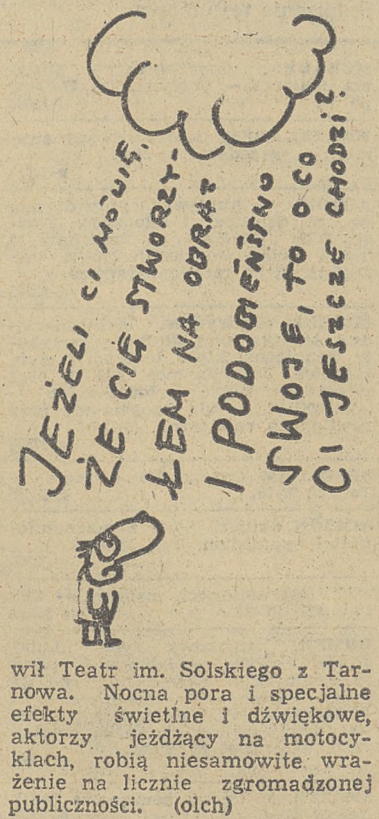 JEŻELI CI MÓWIĘ,
ŻE CIĘ STWORZY-
ŁEM NA OBRAZ
I PODOBIEŃSTWO
SWOJE, TO O CO
CI JESZCZE CHODZI?
wił Teatr im. Solskiego z Tar-
nowa. Nocna pora i specjalne
efekty świetlne i dźwiękowe,
aktorzy jeżdżący na motocy-
klach, robią niesamowite wra-
żenie na licznie zgromadzonej
publiczności. (olch)